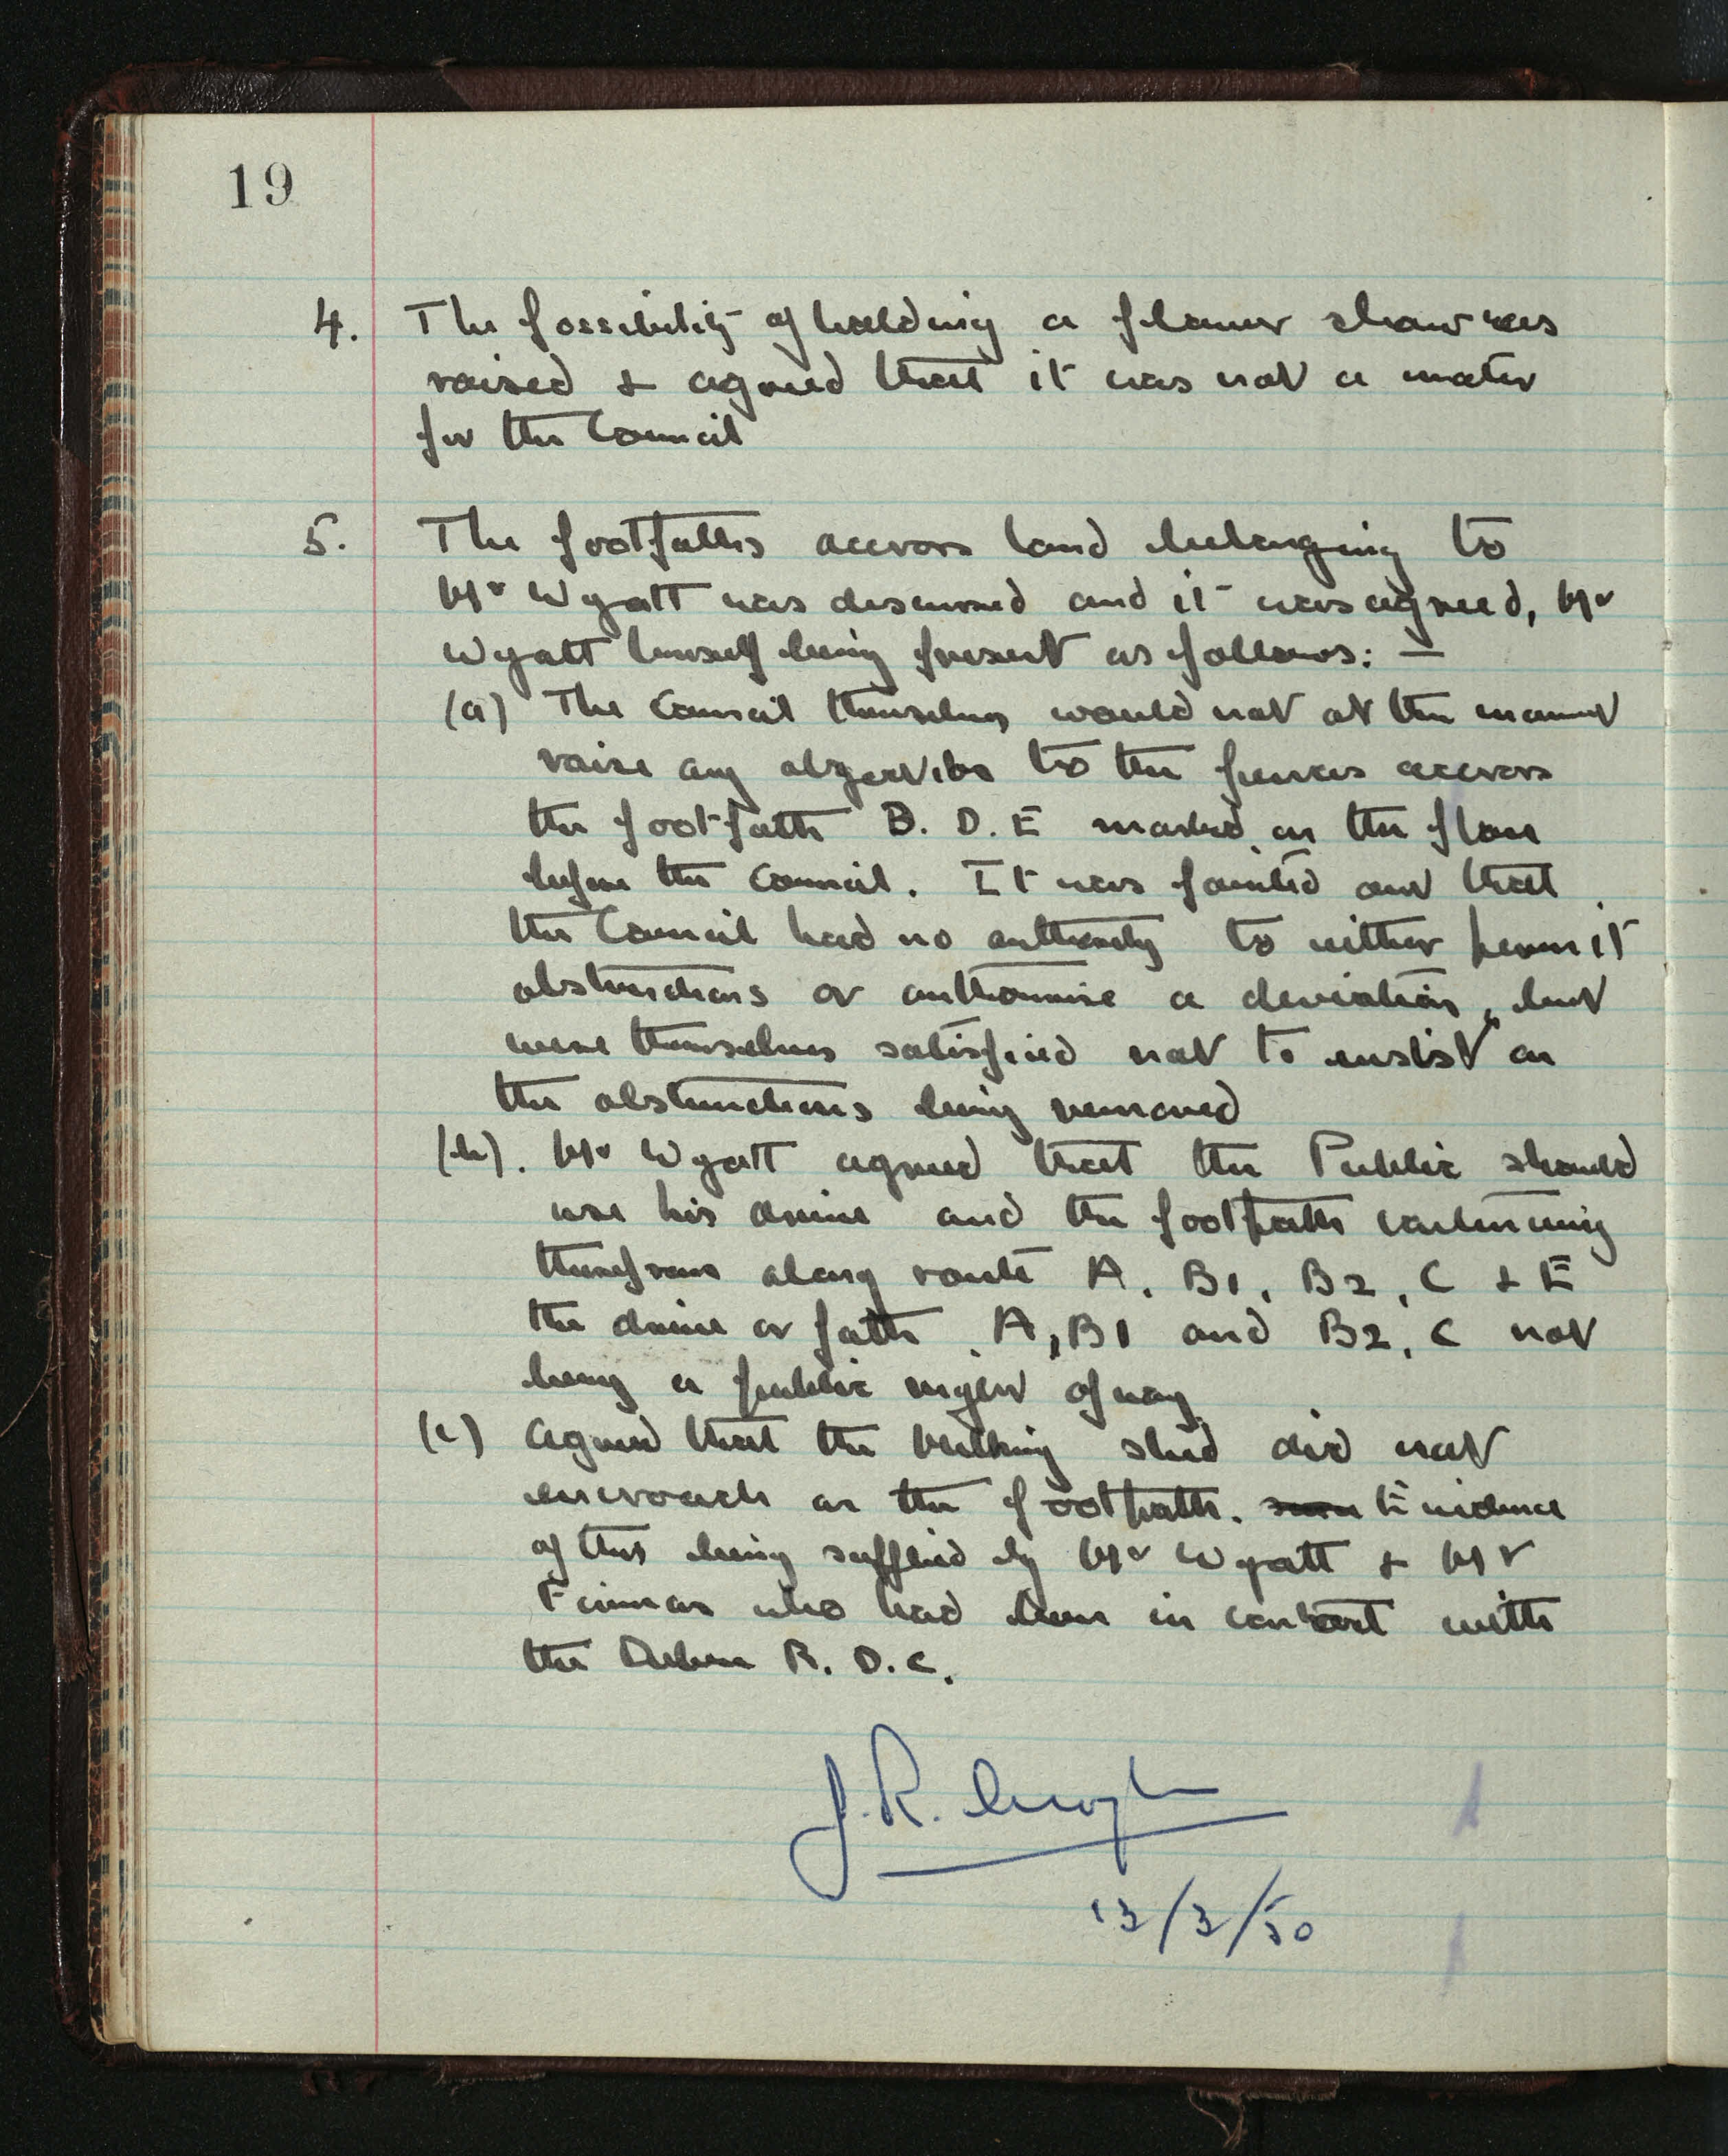 19
4. The possibility of holding a flower show was
raised & agreed that it was not a matter
for the Council
5. The footpaths accross land belonging to
Mr Wyatt was discussed and it was agreed, Mr
Wyatt himself being present as follows: —
(a) The Council themselves would not at the moment
raise any objection to the fences accross
the footpath B. D. E marked on the plan
before the Council. It was pointed out that
the Council had no authority to either permit
obstructions or authorise a deviation, but
were themselves satisfied not to insist on
the obstructions being removed
(b). Mr Wyatt agreed that the Public should
use his drive and the footpath continuing
therefrom along route A. B1. B2. C & E
the drive or path A, B1 and B2. C not
being a public right of way.
(c) Agreed that the milking shed did not
encroach on the footpath. Evidence
of this being supplied by Mr Wyatt & Mr
who had been in contact with
the Deben R. D. C.
J. R.
13/3/50